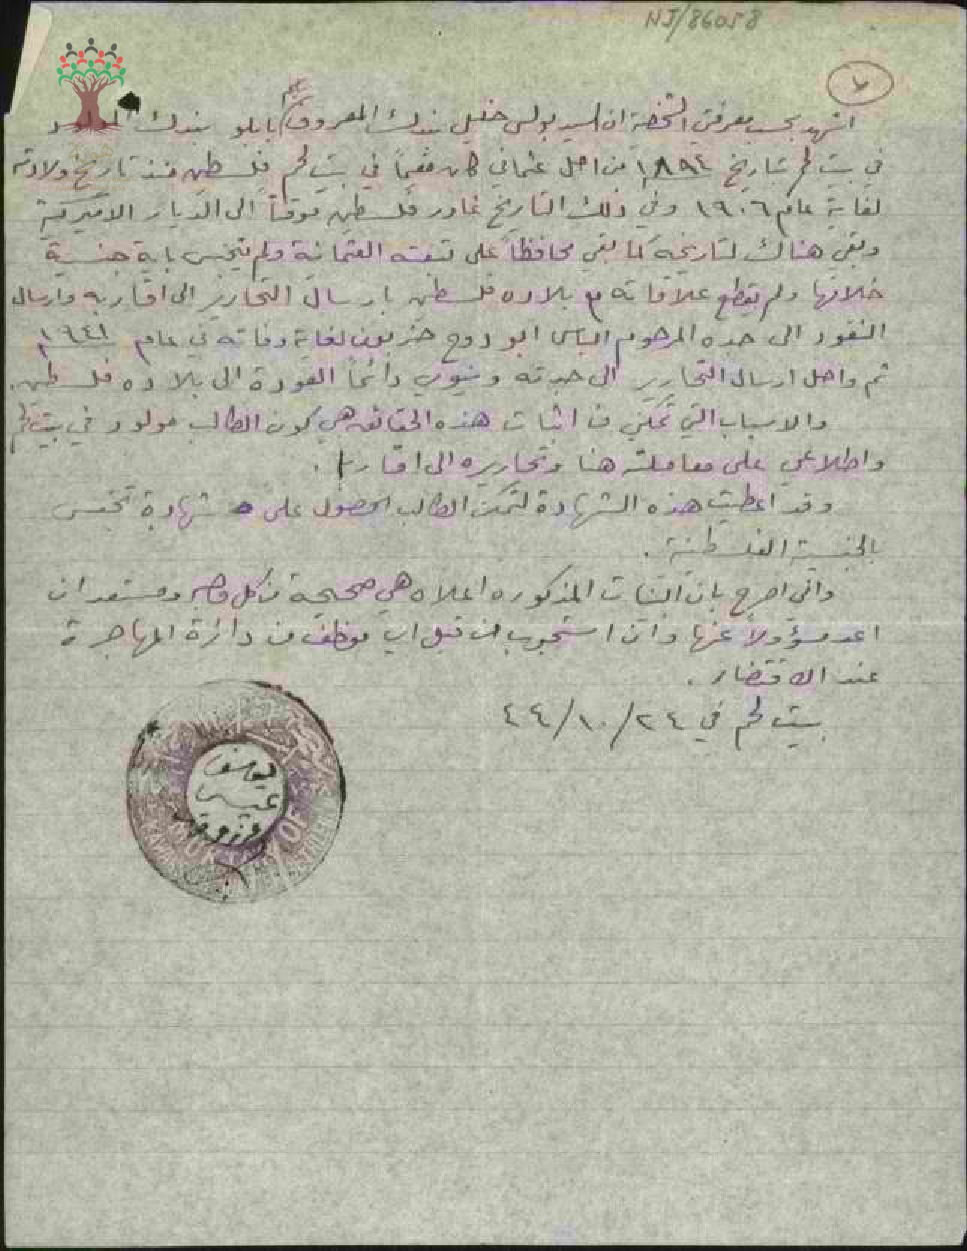 NJ/86058
٧
اشهد بحسب معرفتي الشخصية ان السيد بولس خليل بندك المعروف باسم بابلو بندك المولود
في بيت لحم بتاريخ ١٨٩٤ من اصل عثماني كان مقيماً في بيت لحم فلسطين منذ تاريخ ولادته
لغاية عام ١٩٠٦ وفي ذلك التاريخ غادر فلسطين موقتاً الى الديار الاميركية
وبقي هناك لتاريخه كما بقي محافظاً على تبعته العثمانية ولم يتجنس باية جنسية
خلافها ولم يقطع علاقاته مع بلاده فلسطين بارسال التحارير الى اقاربه وارسال
النقود الى جده المرحوم الياس ابو دوح حزبون لغاية وفاته في عام ١٩٤١
ثم واصل ارسال التحارير الى جدته وينوي دائماً العودة الى بلاده فلسطين.
والاسباب التي تمكني من اثبات هذه الحقائق هي كون الطالب مولود في بيت لحم
واطلاعي على معاملته هنا وتحاريره الى اقاربه.
وقد اعطيت هذه الشهادة لتمكن الطالب الحصول على شهادة تجنس
بالجنسية الفلسطينية.
واني اصرح بان البيانات المذكوره اعلاه هي صحيحة من كل وجه ومستعد ان
اعد مسؤولاً عنها وان استجوب من قبل اي موظف من دائرة المهاجرة
عند الاقتضاء.
بيت لحم في ٢٤/١٠/٤٤
يوسف
عيسى
MUKHTAR OF